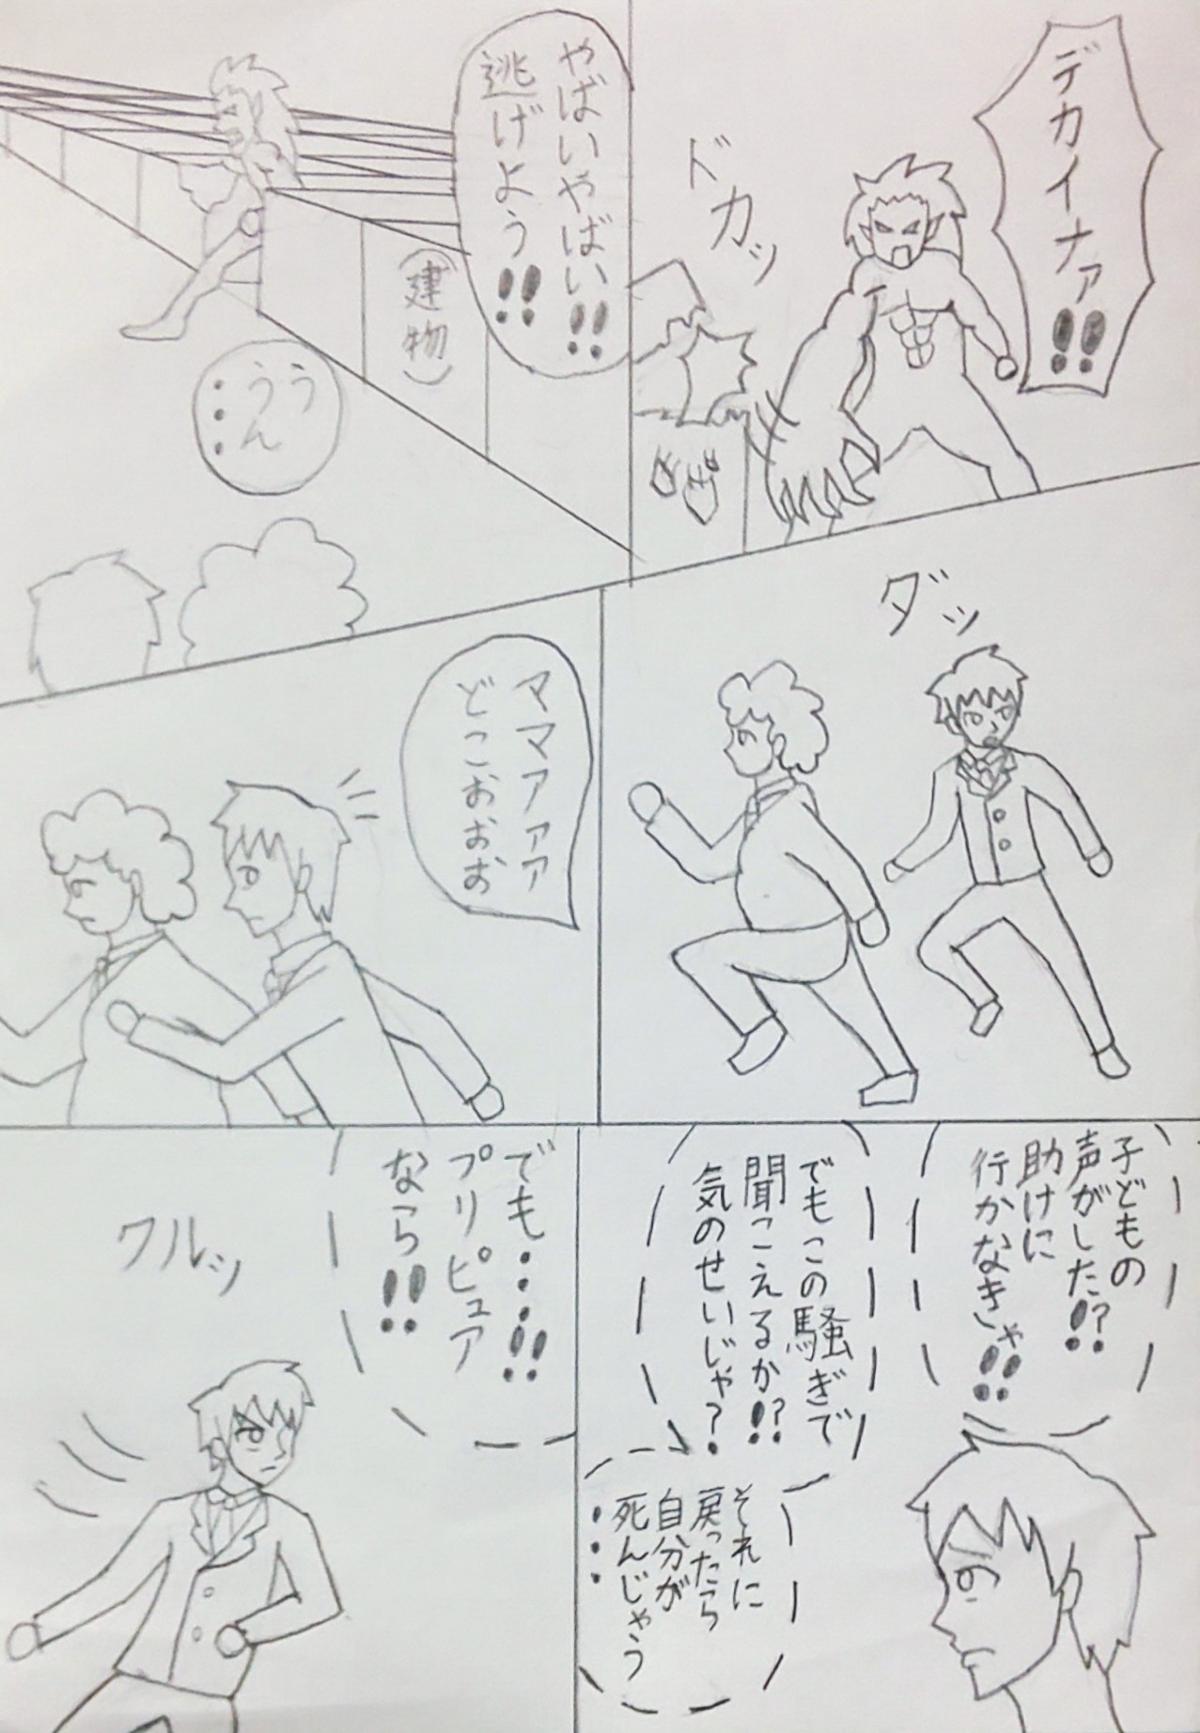 デカイナァ!!
ドカッ
やばいやばい!!
逃げよう!!
(建物)
うぅん
…
ダッ
ママァァァ
どこぉぉぉ
子どもの
声がした!?
助けに
行かなきゃ!!
でもこの騒ぎで
聞こえるか!?
気のせいじゃ?
それに
戻ったら
自分が
死んじゃう
…
でも…!!
プリピュア
なら!!
クルッ